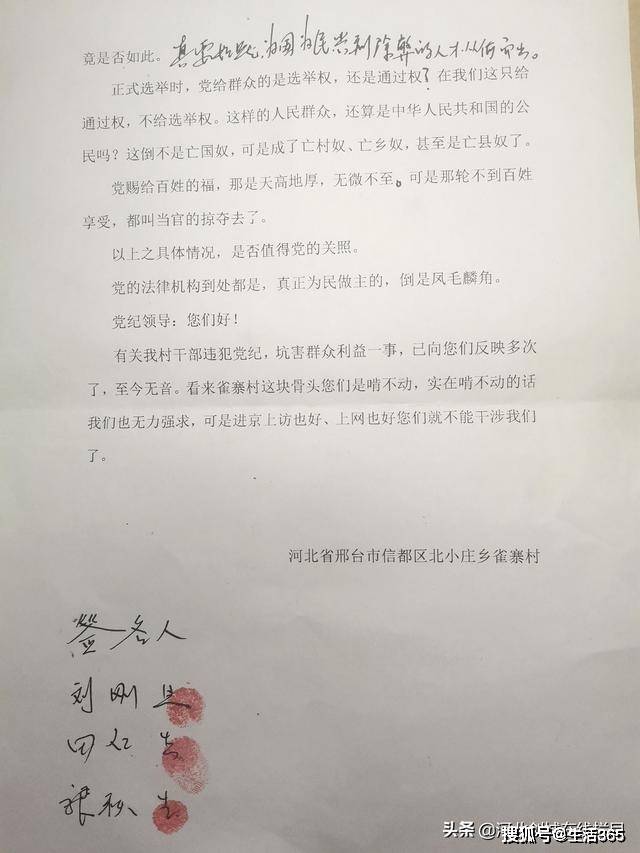 竟是否如此。真要 为国为民兴利除弊的人才从何而出。
正式选举时，党给群众的是选举权，还是通过权？在我们这只给
通过权，不给选举权。这样的人民群众，还算是中华人民共和国的公
民吗？这倒不是亡国奴，可是成了亡村奴、亡乡奴，甚至是亡县奴了。
党赐给百姓的福，那是天高地厚，无微不至。可是那轮不到百姓
享受，都叫当官的掠夺去了。
以上之具体情况，是否值得党的关照。
党的法律机构到处都是，真正为民做主的，倒是凤毛麟角。
党纪领导：您们好！
有关我村干部违犯党纪，坑害群众利益一事，已向您们反映多次
了，至今无音。看来雀寨村这块骨头您们是啃不动，实在啃不动的话
我们也无力强求，可是进京上访也好、上网也好您们就不能干涉我们
了。
河北省邢台市信都区北小庄乡雀寨村
签名人
刘刚
田仁
张秋
头条 @河北创城在线栏目
搜狐号@生活365